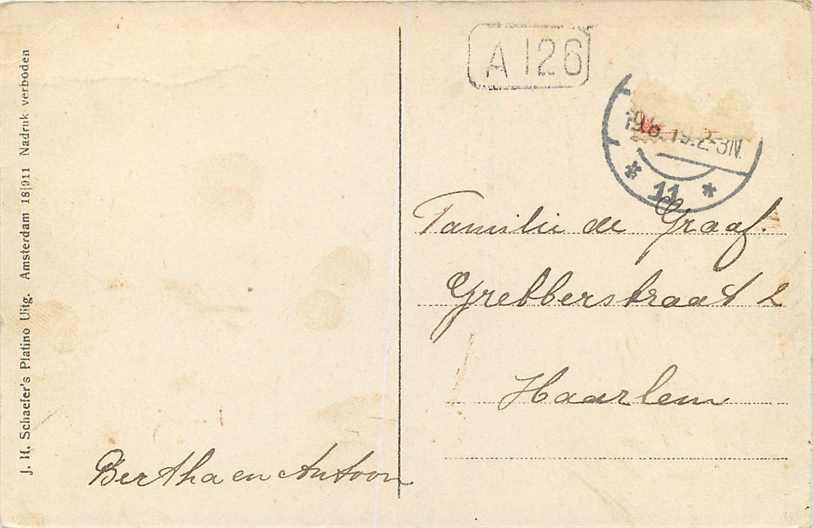 J. H. Schaefer's Platino Uitg. Amsterdam 18|911 Nadruk verboden
A 126
19.2-3N.
* 11 *
Familie de Graaf.
Grebberstraat 2
Haarlem
Bertha en Antoon